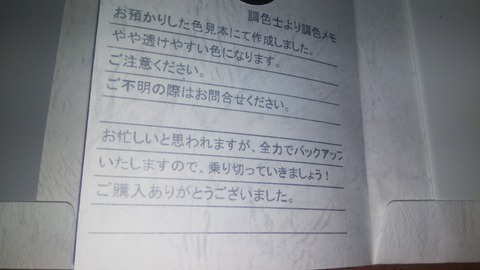 調色士より調色メモ
お預かりした色見本にて作成しました。
やや透けやすい色になります。
ご注意ください。
ご不明の際はお問合せください。
お忙しいと思われますが、全力でバックアップ
いたしますので、乗り切っていきましょう!
ご購入ありがとうございました。